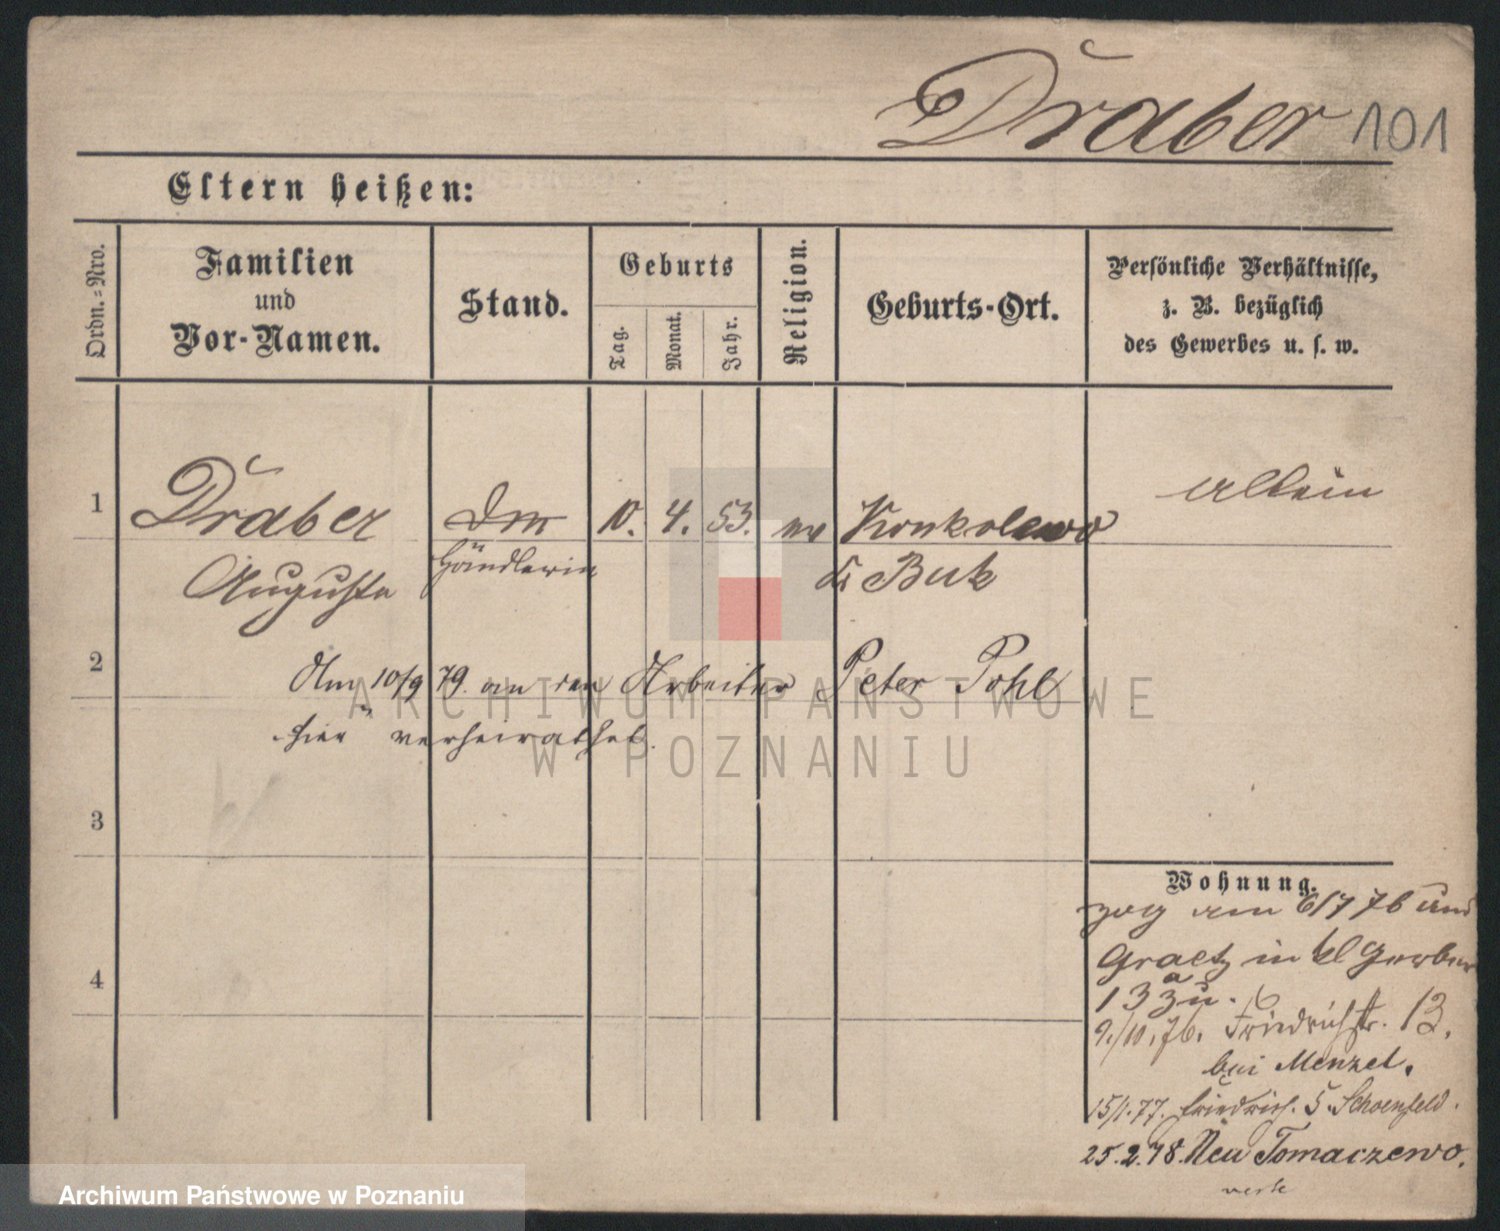 Draber 101
Eltern heißen:
Ordn.-Nro.
Familien
und
Vor-Namen.
Stand.
Geburts
Tag.
Monat.
Jahr.
Religion.
Geburts-Ort.
Persönliche Verhältnisse,
z. B. bezüglich
des Gewerbes u. s. w.
1 Draber 10. 4. 53. ev Konkolewo allein
Auguste Händlerin Kr Buk
2 Am 10/9 79. an den Arbeiter Peter Pohl
hier verheirathet.
3
4
Wohnung.
zog am 6/7 76 aus
Graetz in kl Gerber
13a zu.
9./10.76. Friedrichstr. 13.
bei Menzel.
15/1.77. Friedrich. 5. Schoenfeld.
25.2.78. Neu Tomaczewo.
verte
ARCHIWUM PAŃSTWOWE
W POZNANIU
Archiwum Państwowe w Poznaniu